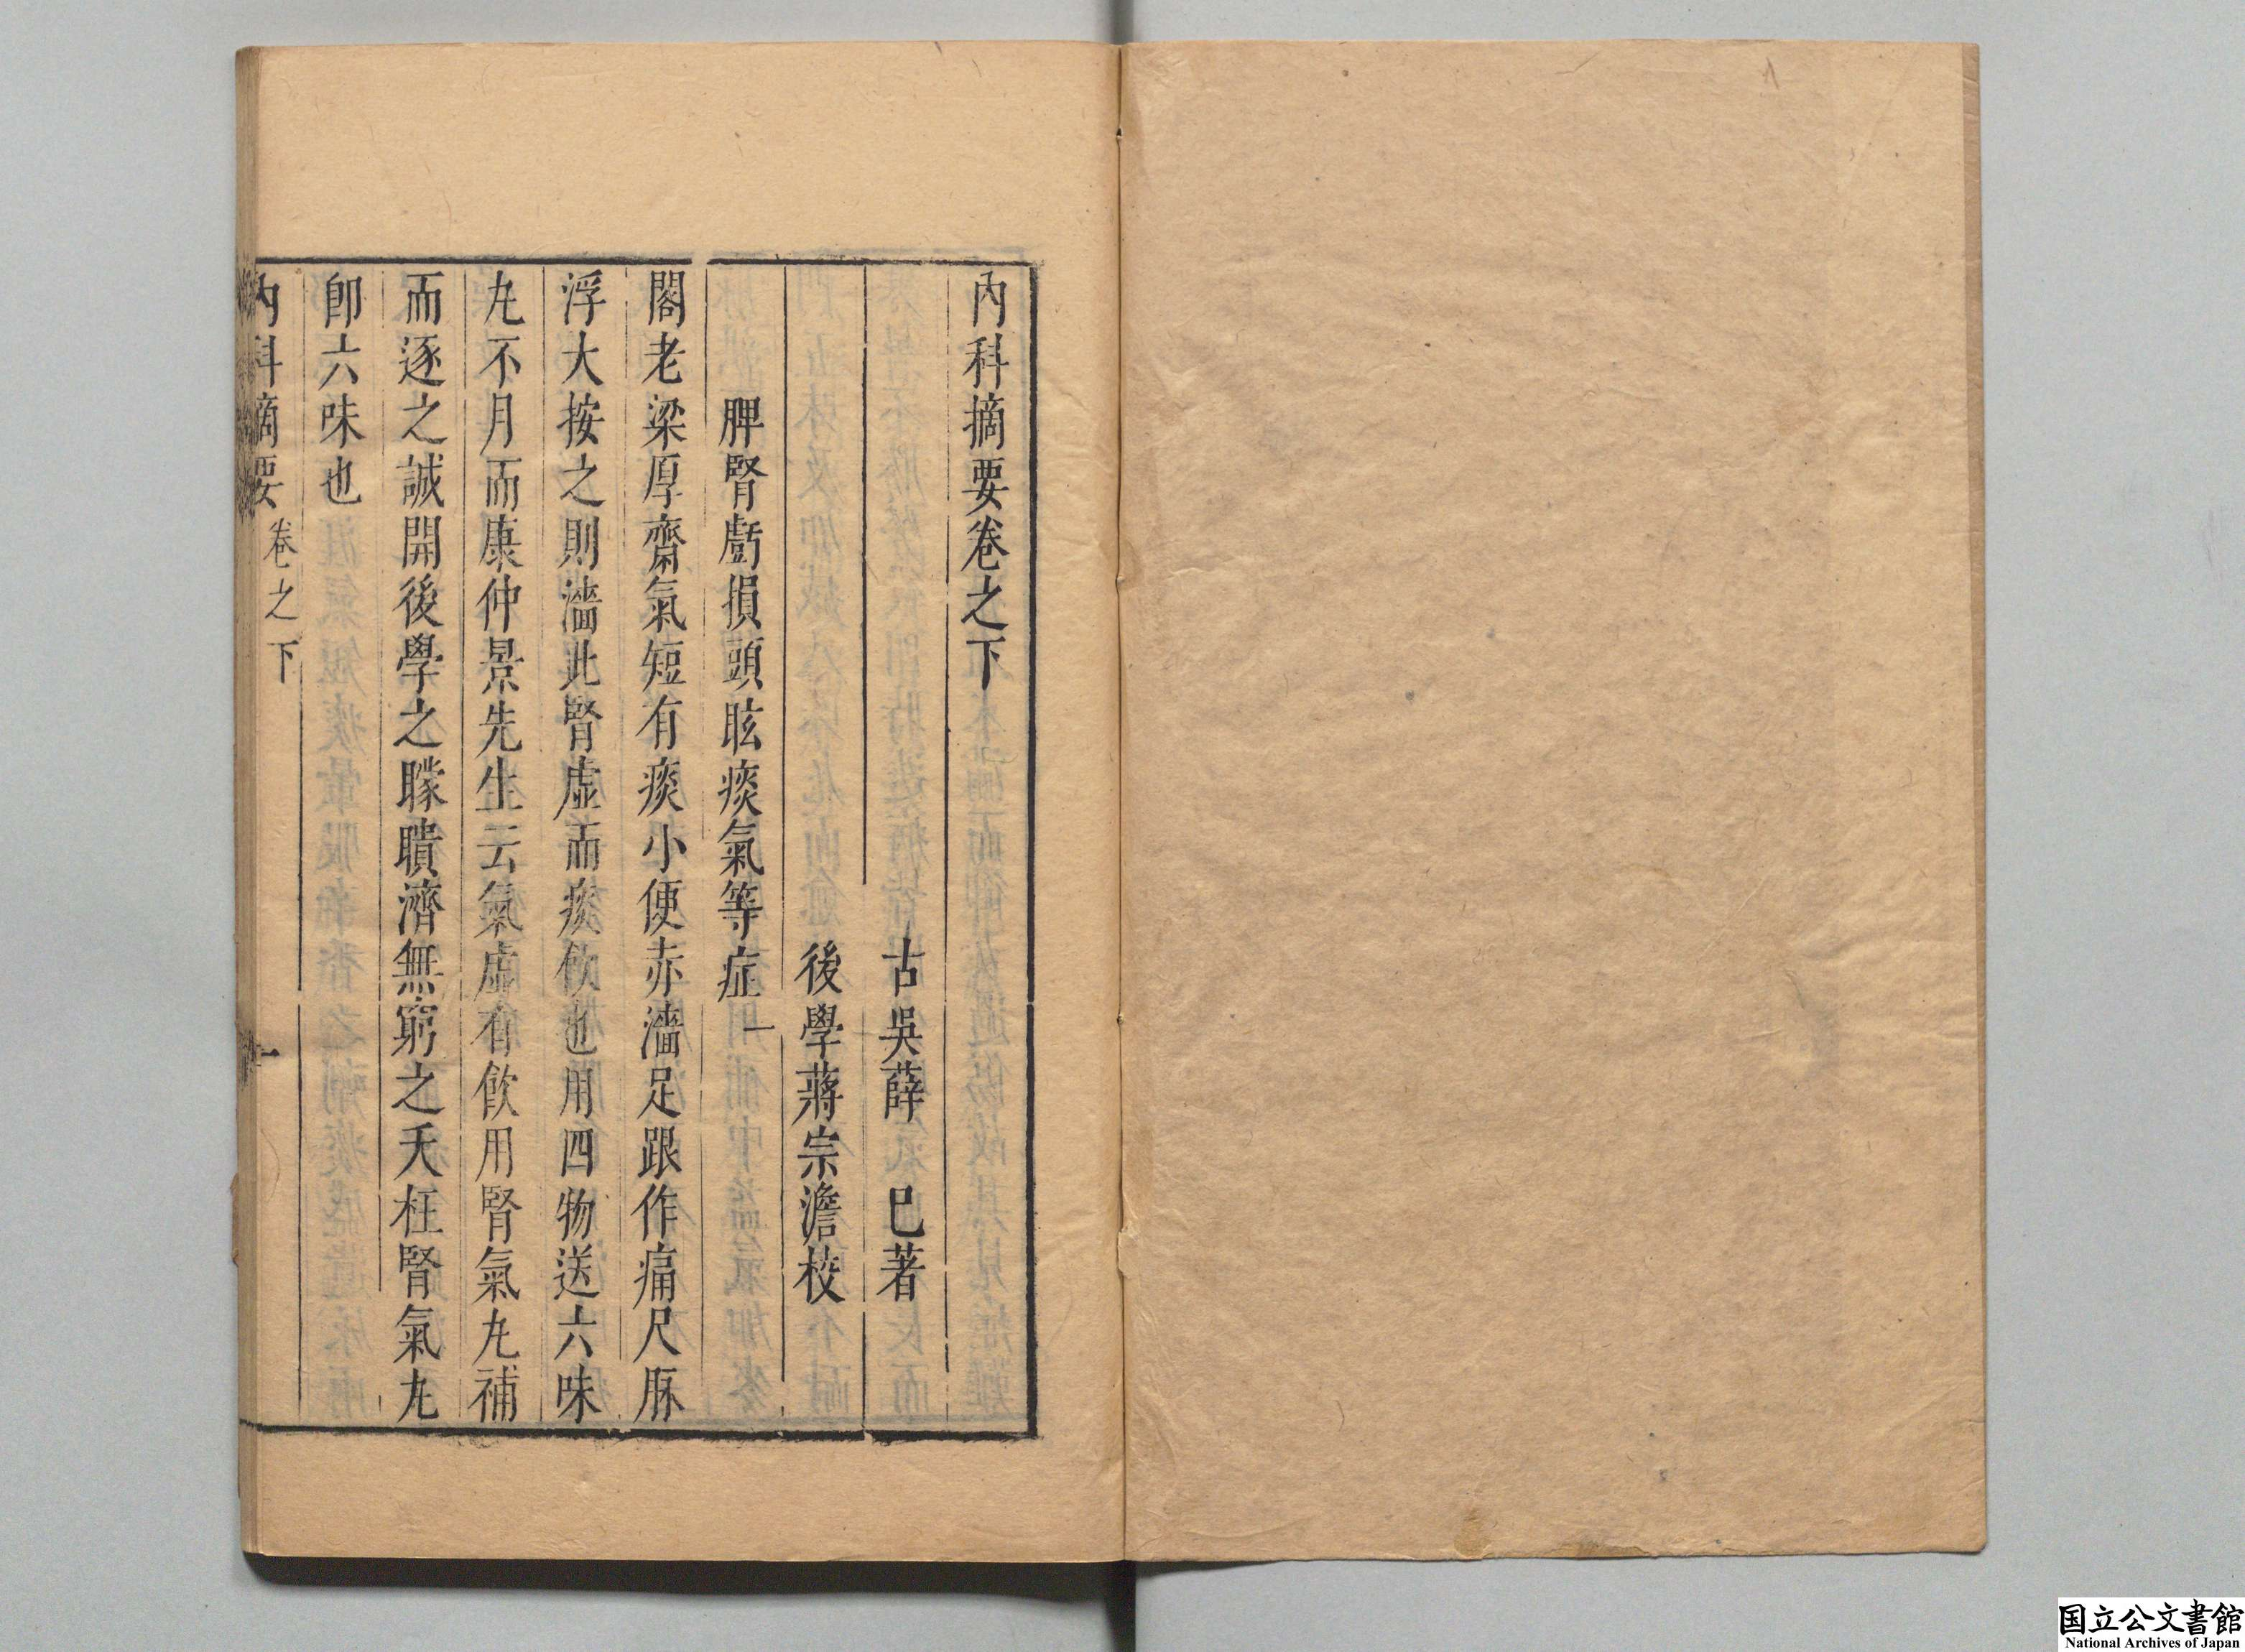 內科摘要卷之下
古吳薛　己著
後學蔣宗澹校
脾腎虧損頭眩痰氣等症一
閣老梁厚齋氣短有痰小便赤濇足跟作痛尺脈
浮大按之則濇此腎虛而痰飲也用四物送六味
丸不月而康仲景先生云氣虛有飲用腎氣丸補
而逐之誠開後學之矇瞶濟無窮之夭枉腎氣丸
卽六味也
內科摘要 卷之下 一
国立公文書館
National Archives of Japan